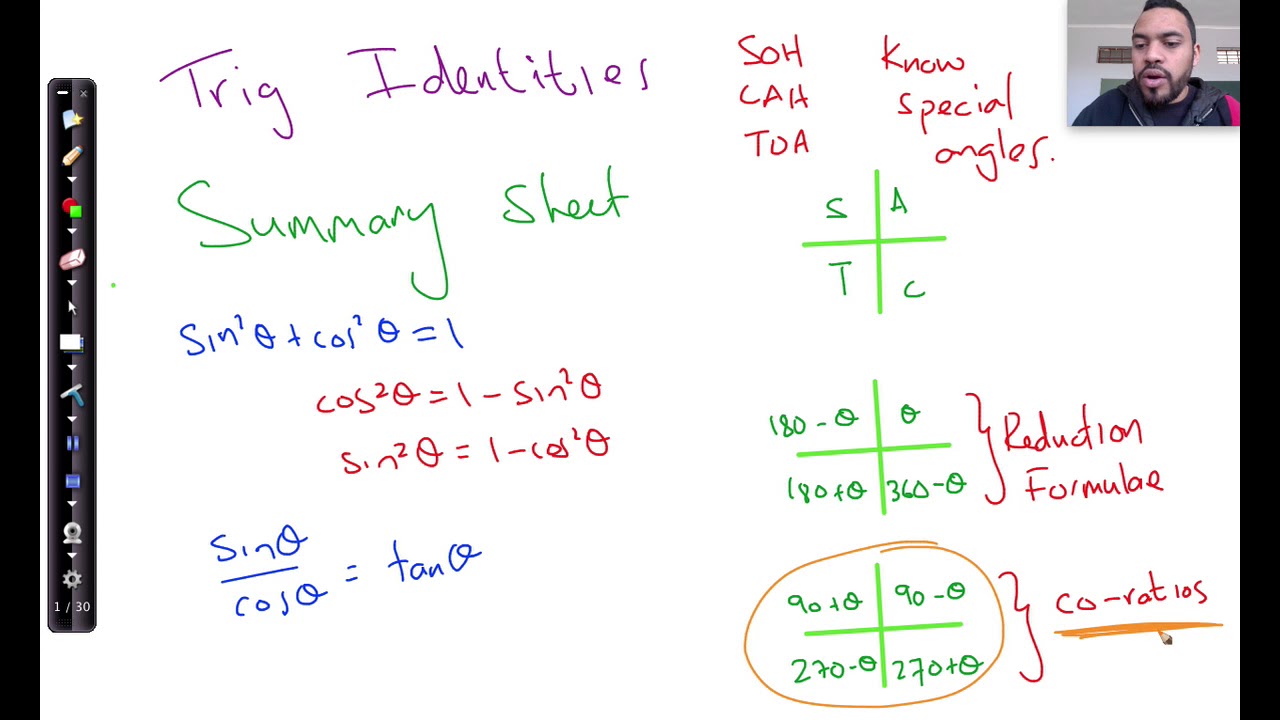 Trig Identities
Summary Sheet
sin²θ + cos²θ = 1
cos²θ = 1 - sin²θ
sin²θ = 1 - cos²θ
sinθ/cosθ = tanθ
SOH
CAH
TOA
Know
special
angles.
S A
T C
180 - θ θ
180 + θ 360 - θ
Reduction
Formulae
90 + θ 90 - θ
270 - θ 270 + θ
co-ratios
1 / 30